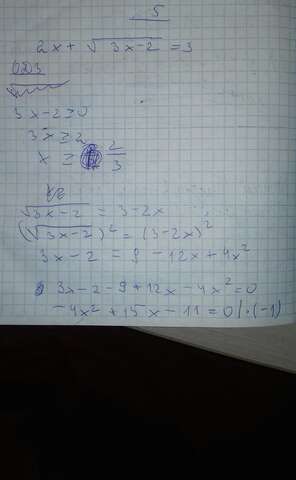 5
2x + √3x-2 = 3
ОДЗ
3x-2≥0
3x ≥ 2
x ≥ 2/3
√3x-2 = 3-2x
(√3x-2)² = (3-2x)²
3x-2 = 9-12x+4x²
3x-2-9+12x-4x²=0
-4x²+15x-11=0 |·(-1)